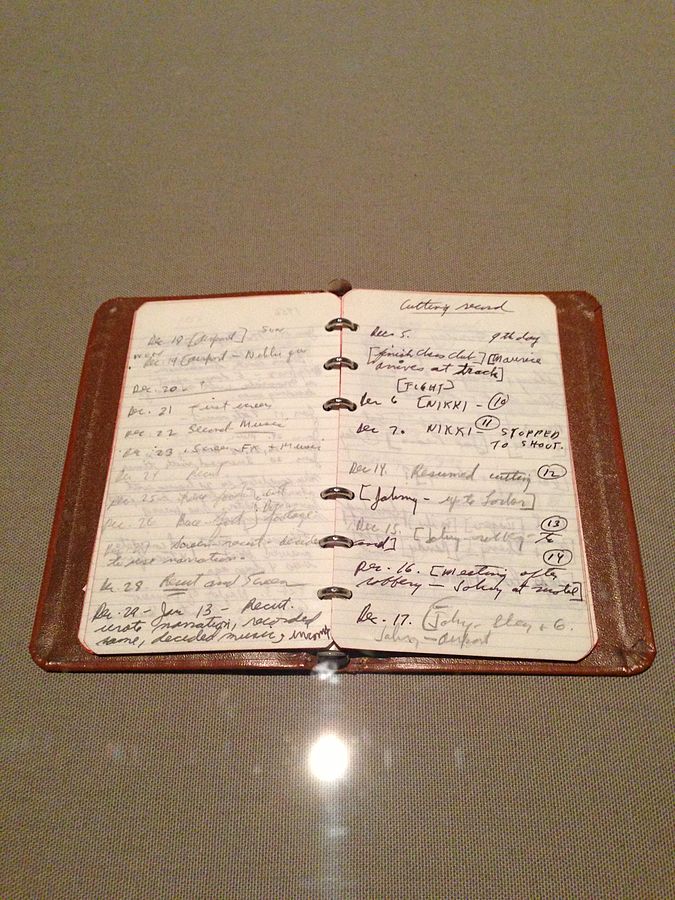 Dec 18 [airport] Sun
Dec 19 [airport -
Dec. 20 -
Dec. 21 First screen
Dec. 22 Second Music
Dec. 23 Screen FX + Music
Dec 27 Recut
Dec 25 race
Dec. 26 Race footage
Screen recut - decided
to use narration.
Dec 28 Recut and Screen
Dec. 29 - Jan 13 - Recut.
wrote narration, recorded
same, decided music,
Cutting record
Dec 5. 9th day
[finish chess club] [Maurice
arrives at track]
[FIGHT]
Dec 6 [NIKKI - 10
Dec 7. NIKKI - 11 STOPPED
TO SHOOT.
Dec 14. Resumed cutting 12
[Johnny - up to locker]
Dec 15. [Johnny robbery to 13
end] 14
Dec. 16. [Meeting after
robbery - Johnny at motel]
Dec. 17. [Johnny - + G.
Johnny - airport